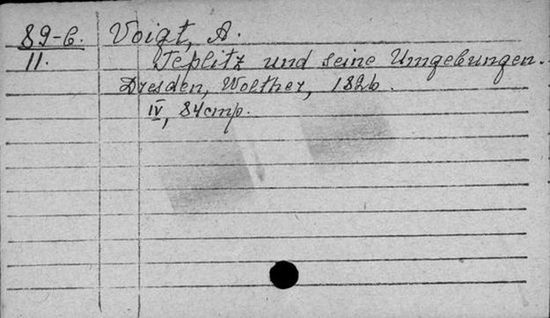 89-6. Voigt, A.
11. Teplitz und seine Umgebungen.
Dresden, Walther, 1826.
IV, 84 стр.